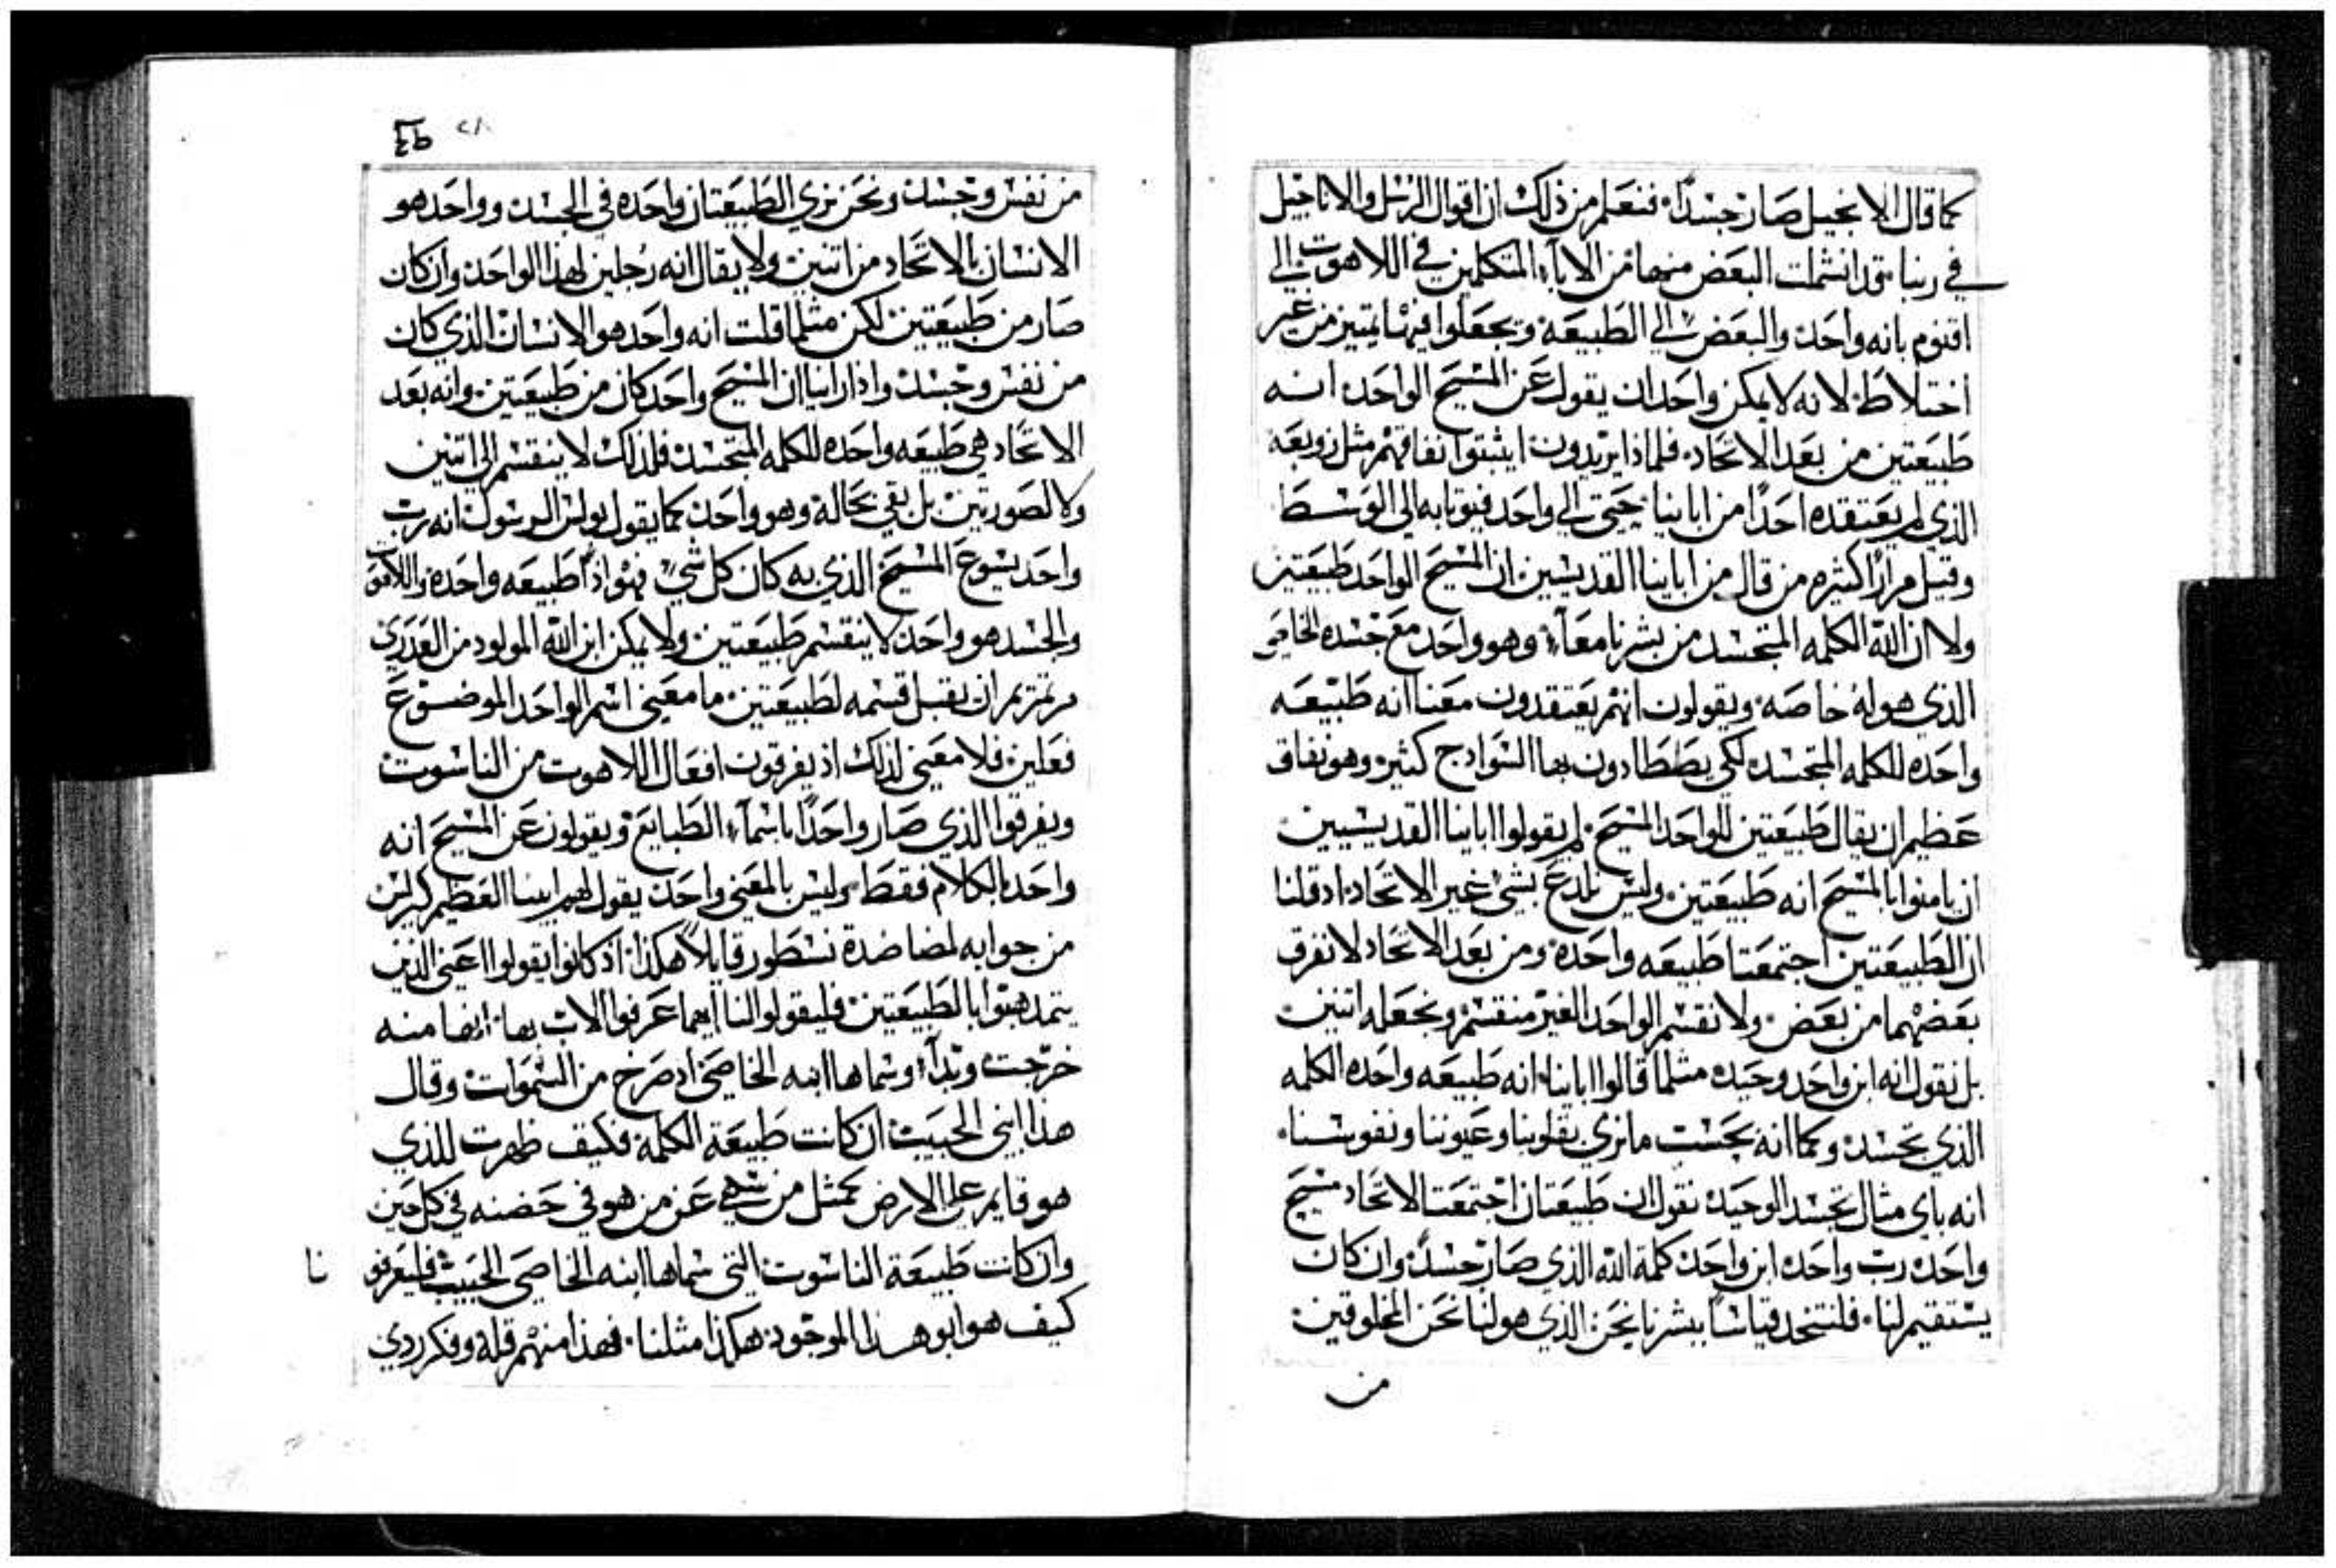 كما قال الانجيل صار جسداً. فنعلم من ذلك ان اقوال الرسل والاناجيل
في ربنا قد انشملت البعض منها من الاباء المتكلمين في اللاهوت الي
اقنوم بانه واحد والبعض الي الطبيعة ويجعلوا فيها يتميز من غير
اختلاط لانه لا يمكن واحد ان يقول عن المسيح الواحد انه
طبيعتين من بعد الاتحاد. فلماذا يريدون ايثبتوا نفاقهم مثل زوبعه
الذي لم يعتقده احداً من اباينا حتي الي واحد فيوتا به الي الوسط
وقيل مراراً كثيره من قال من اباينا القديسين ان المسيح الواحد طبيعتين
ولا ان الله الكلمه المتجسد من بشرنا معاً وهو واحد مع جسده الخاص
الذي هو له خاصه ويقولون انهم يعتقدون معنا انه طبيعه
واحده للكلمه المتجسد لكي يصطادون بها السوادج كثير وهو نفاق
عظيم ان يقال طبيعتين للواحد المسيح لم يقولوا اباينا القديسين
ان يامنوا بالمسيح انه طبيعتين وليس ندع بشي غير الاتحاد اد قلنا
ان الطبيعتين اجتمعتا طبيعه واحده ومن بعد الاتحاد لا نفرق
بعضهما من بعض ولا نقسم الواحد الغير منقسم ونجعله اتنين
بل نقول انه ابن واحد وحيد مثلما قالوا اباينا انه طبيعه واحده الكلمه
الذي تجسد وكما انه بحسب ما نري بقلوبنا وعيوننا ونفوسنا
انه باي مثال تجسد الوحيد نقول ان طبيعتان اجتمعتا الاتحاد مسيح
واحد رب واحد ابن واحد كلمة الله الذي صار جسد وان كان
يستقيم لنا. فلنتخد قياساً بشرنا نحن الذي هو لنا نحن المخلوقين
من
٤٩
من نفس وجسد ونحن نري الطبيعتان واحده في الجسد وواحد هو
الانسان بالاتحاد من اتنين ولا يقال انه رجلين لهذا الواحد وان كان
صار من طبيعتين لكن مثلما قلت انه واحد هو الانسان الذي كان
من نفس وجسد واذا راينا ان المسيح واحد كان من طبيعتين وانه بعد
الاتحاد هي طبيعه واحده للكلمه المتجسد فلذلك لا ينقسم الي اتنين
ولا لصورتين بل بقي بحاله وهو واحد كما يقول بولس الرسول انه رب
واحد يسوع المسيح الذي به كان كل شي فهو اذاً طبيعه واحده واللاهوت
والجسد هو واحد لا ينقسم طبيعتين ولا يمكن ابن الله المولود من العدري
مرتمريم ان يقبل قسمه لطبيعتين ما معني اسم الواحد الموضوع
فعلين فلا معني لذلك اذ يفرقون افعال اللاهوت من الناسوت
ويفرقوا الذي صار واحداً باسماء الطبايع ويقولون عن المسيح انه
واحد بالكلام فقط وليس بالمعني واحد يقول لهم ابينا العظيم كيرلس
من جوابه لمضاضدة نسطور قايلاً هكذا اذ كانوا يقولوا اعني الذين
يتمدهبوا بالطبيعتين فليقولوا لنا ايهما عرفوا الاب بها انها منه
خرجت وبداء وسماها ابنه الخاصي اد صرخ من السموات وقال
هذا ابني الحبيب ان كانت طبيعة الكلمة فكيف ظهرت للذي
هو قايم علي الارض كمثل من سهي عن من هو في حضنه في كل حين
وان كانت طبيعة الناسوت التي سماها ابنه الخاصي الحبيب فليعرفونا
كيف هو ابو هذا الموجود هكذا مثلنا. فهذا منهم قله وفكر ردي